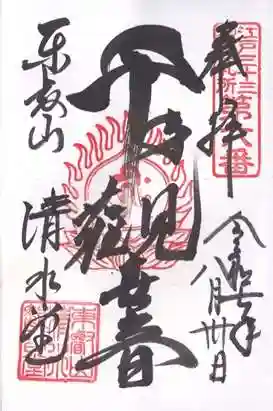 奉拝
江戸三十三
観音札所
第六番
千手觀世音
東叡山
清水堂
令和年
八月卅日